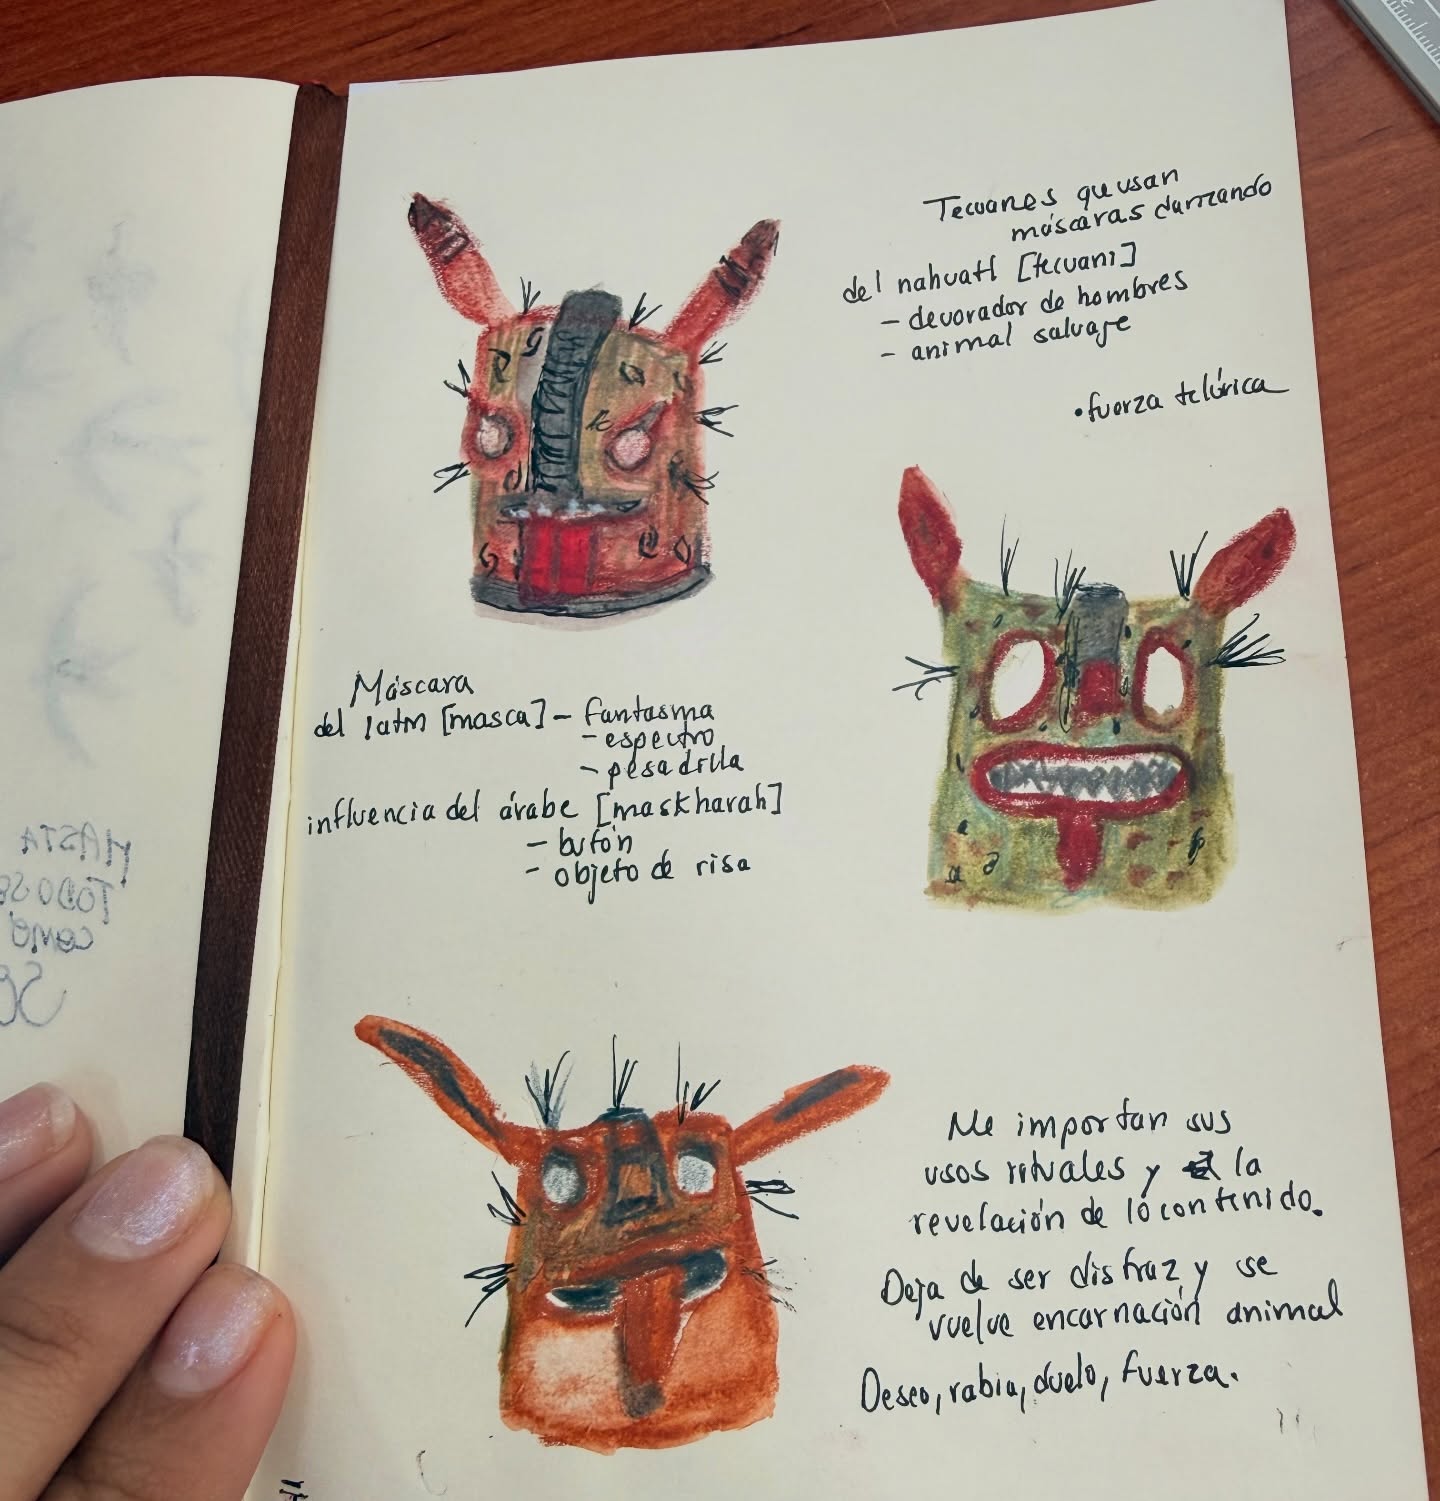 Tecuanes que usan
máscaras danzando
del nahuatl [tecuani]
- devorador de hombres
- animal salvaje
• fuerza telúrica
Máscara
del latín [masca] - fantasma
- espectro
- pesadilla
influencia del árabe [maskharah]
- bufón
- objeto de risa
Me importan sus
usos rituales y la
revelación de lo contenido.
Deja de ser disfraz y se
vuelve encarnación animal
Deseo, rabia, duelo, fuerza.
HASTA
TODO SE
COMO